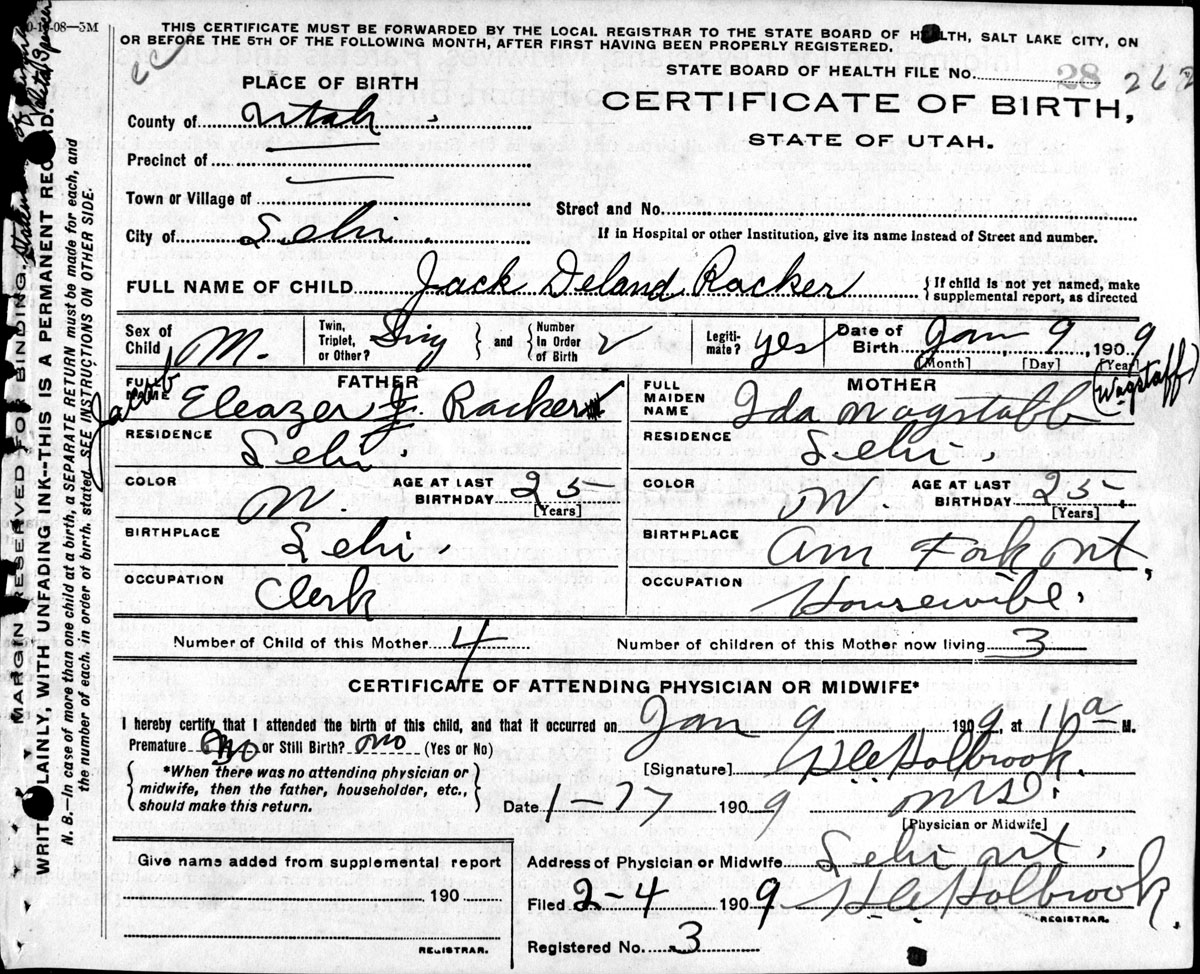 0-19-08—5M
THIS CERTIFICATE MUST BE FORWARDED BY THE LOCAL REGISTRAR TO THE STATE BOARD OF HEALTH, SALT LAKE CITY, ON
OR BEFORE THE 5TH OF THE FOLLOWING MONTH, AFTER FIRST HAVING BEEN PROPERLY REGISTERED.
STATE BOARD OF HEALTH FILE No. 28 262
CERTIFICATE OF BIRTH,
STATE OF UTAH.
PLACE OF BIRTH
County of Utah
Precinct of
Town or Village of
City of Lehi.
Street and No.
If in Hospital or other Institution, give its name instead of Street and number.
FULL NAME OF CHILD Jack Deland Racker
If child is not yet named, make
supplemental report, as directed
Sex of Child M.
Twin, Triplet, or Other? Sing
and Number in Order of Birth 2
Legitimate? yes
Date of Birth Jan 9, 1909
[Month] [Day] [Year]
FATHER
FULL NAME Eleazer J. Racker
Jacob
RESIDENCE Lehi.
COLOR W. AGE AT LAST BIRTHDAY 25 [Years]
BIRTHPLACE Lehi.
OCCUPATION Clerk
MOTHER
FULL MAIDEN NAME Ida Wagstaff (Wagstaff)
RESIDENCE Lehi.
COLOR W. AGE AT LAST BIRTHDAY 25 [Years]
BIRTHPLACE Am Fork Ut.
OCCUPATION Housewife.
Number of Child of this Mother 4 Number of children of this Mother now living 3
CERTIFICATE OF ATTENDING PHYSICIAN OR MIDWIFE*
I hereby certify that I attended the birth of this child, and that it occurred on Jan 9 1909, at 10 a M.
Premature No or Still Birth? no (Yes or No)
*When there was no attending physician or
midwife, then the father, householder, etc.,
should make this return.
[Signature] Holbrook.
Date 1-17 1909 M.D.
[Physician or Midwife]
Give name added from supplemental report
190
REGISTRAR.
Address of Physician or Midwife Lehi Ut.
Filed 2-4 1909 Holbrook.
REGISTRAR.
Registered No. 3
MARGIN RESERVED FOR BINDING.
WRITE PLAINLY, WITH UNFADING INK—THIS IS A PERMANENT RECORD.
N. B.—In case of more than one child at a birth, a SEPARATE RETURN must be made for each, and
the number of each, in order of birth, stated. SEE INSTRUCTIONS ON OTHER SIDE.